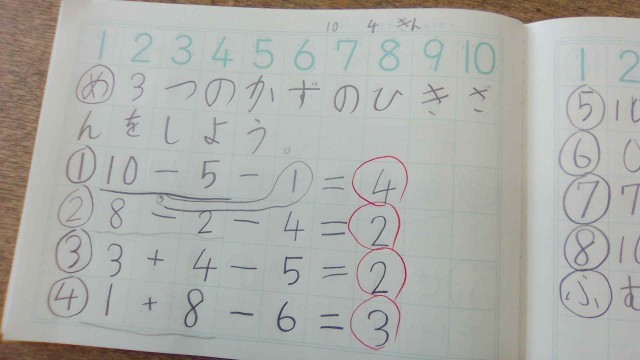 10 4 きん
1 2 3 4 5 6 7 8 9 10
め 3つのかずのひきざ
んをしよう。
① 10 - 5 - 1 = 4
② 8 - 2 - 4 = 2
③ 3 + 4 - 5 = 2
④ 1 + 8 - 6 = 3
1 2
⑤ 10
⑥
⑦ 7
⑧ 10
ふ む